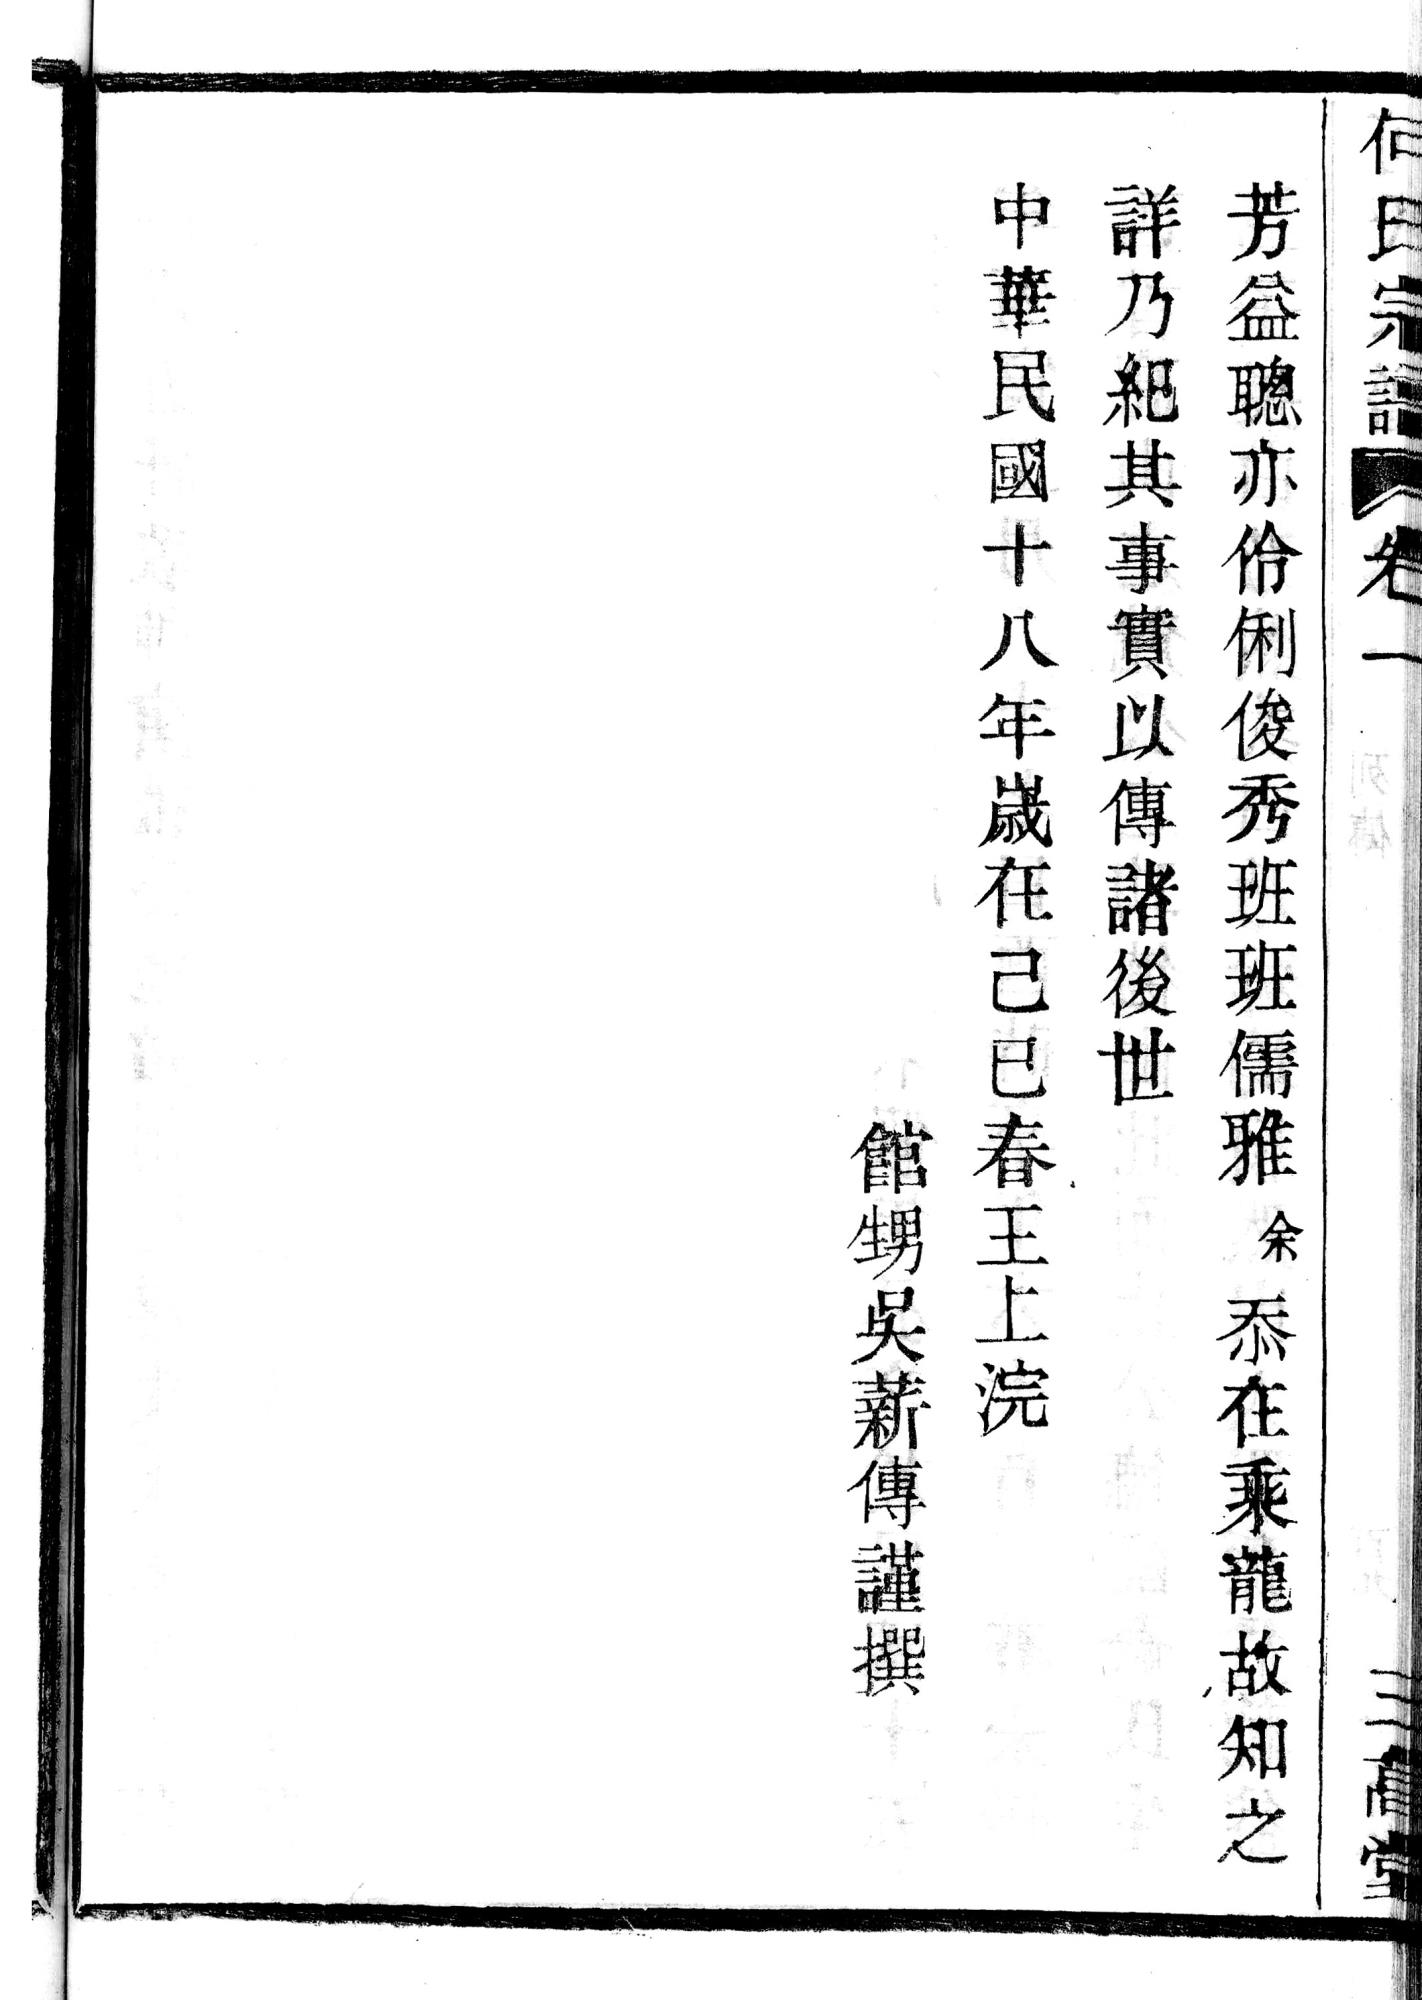 何氏宗譜
卷一
列傳
三高堂
芳益聰亦伶俐俊秀班班儒雅余忝在乘龍故知之
詳乃紀其事實以傳諸後世
中華民國十八年歲在己巳春王上浣
館甥吳薪傳謹撰